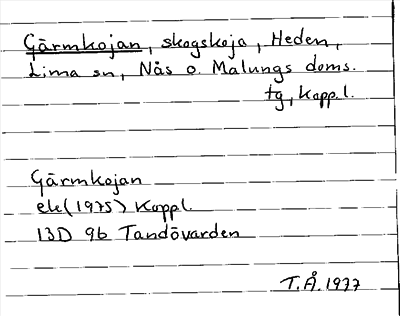 Gärmkojan, skogskoja, Heden,
Lima sn, Nås o. Malungs doms.
tg, Koppl.
Gärmkojan
ek (1975) Koppl.
13D 9b Tandövarden
T.Å. 1977